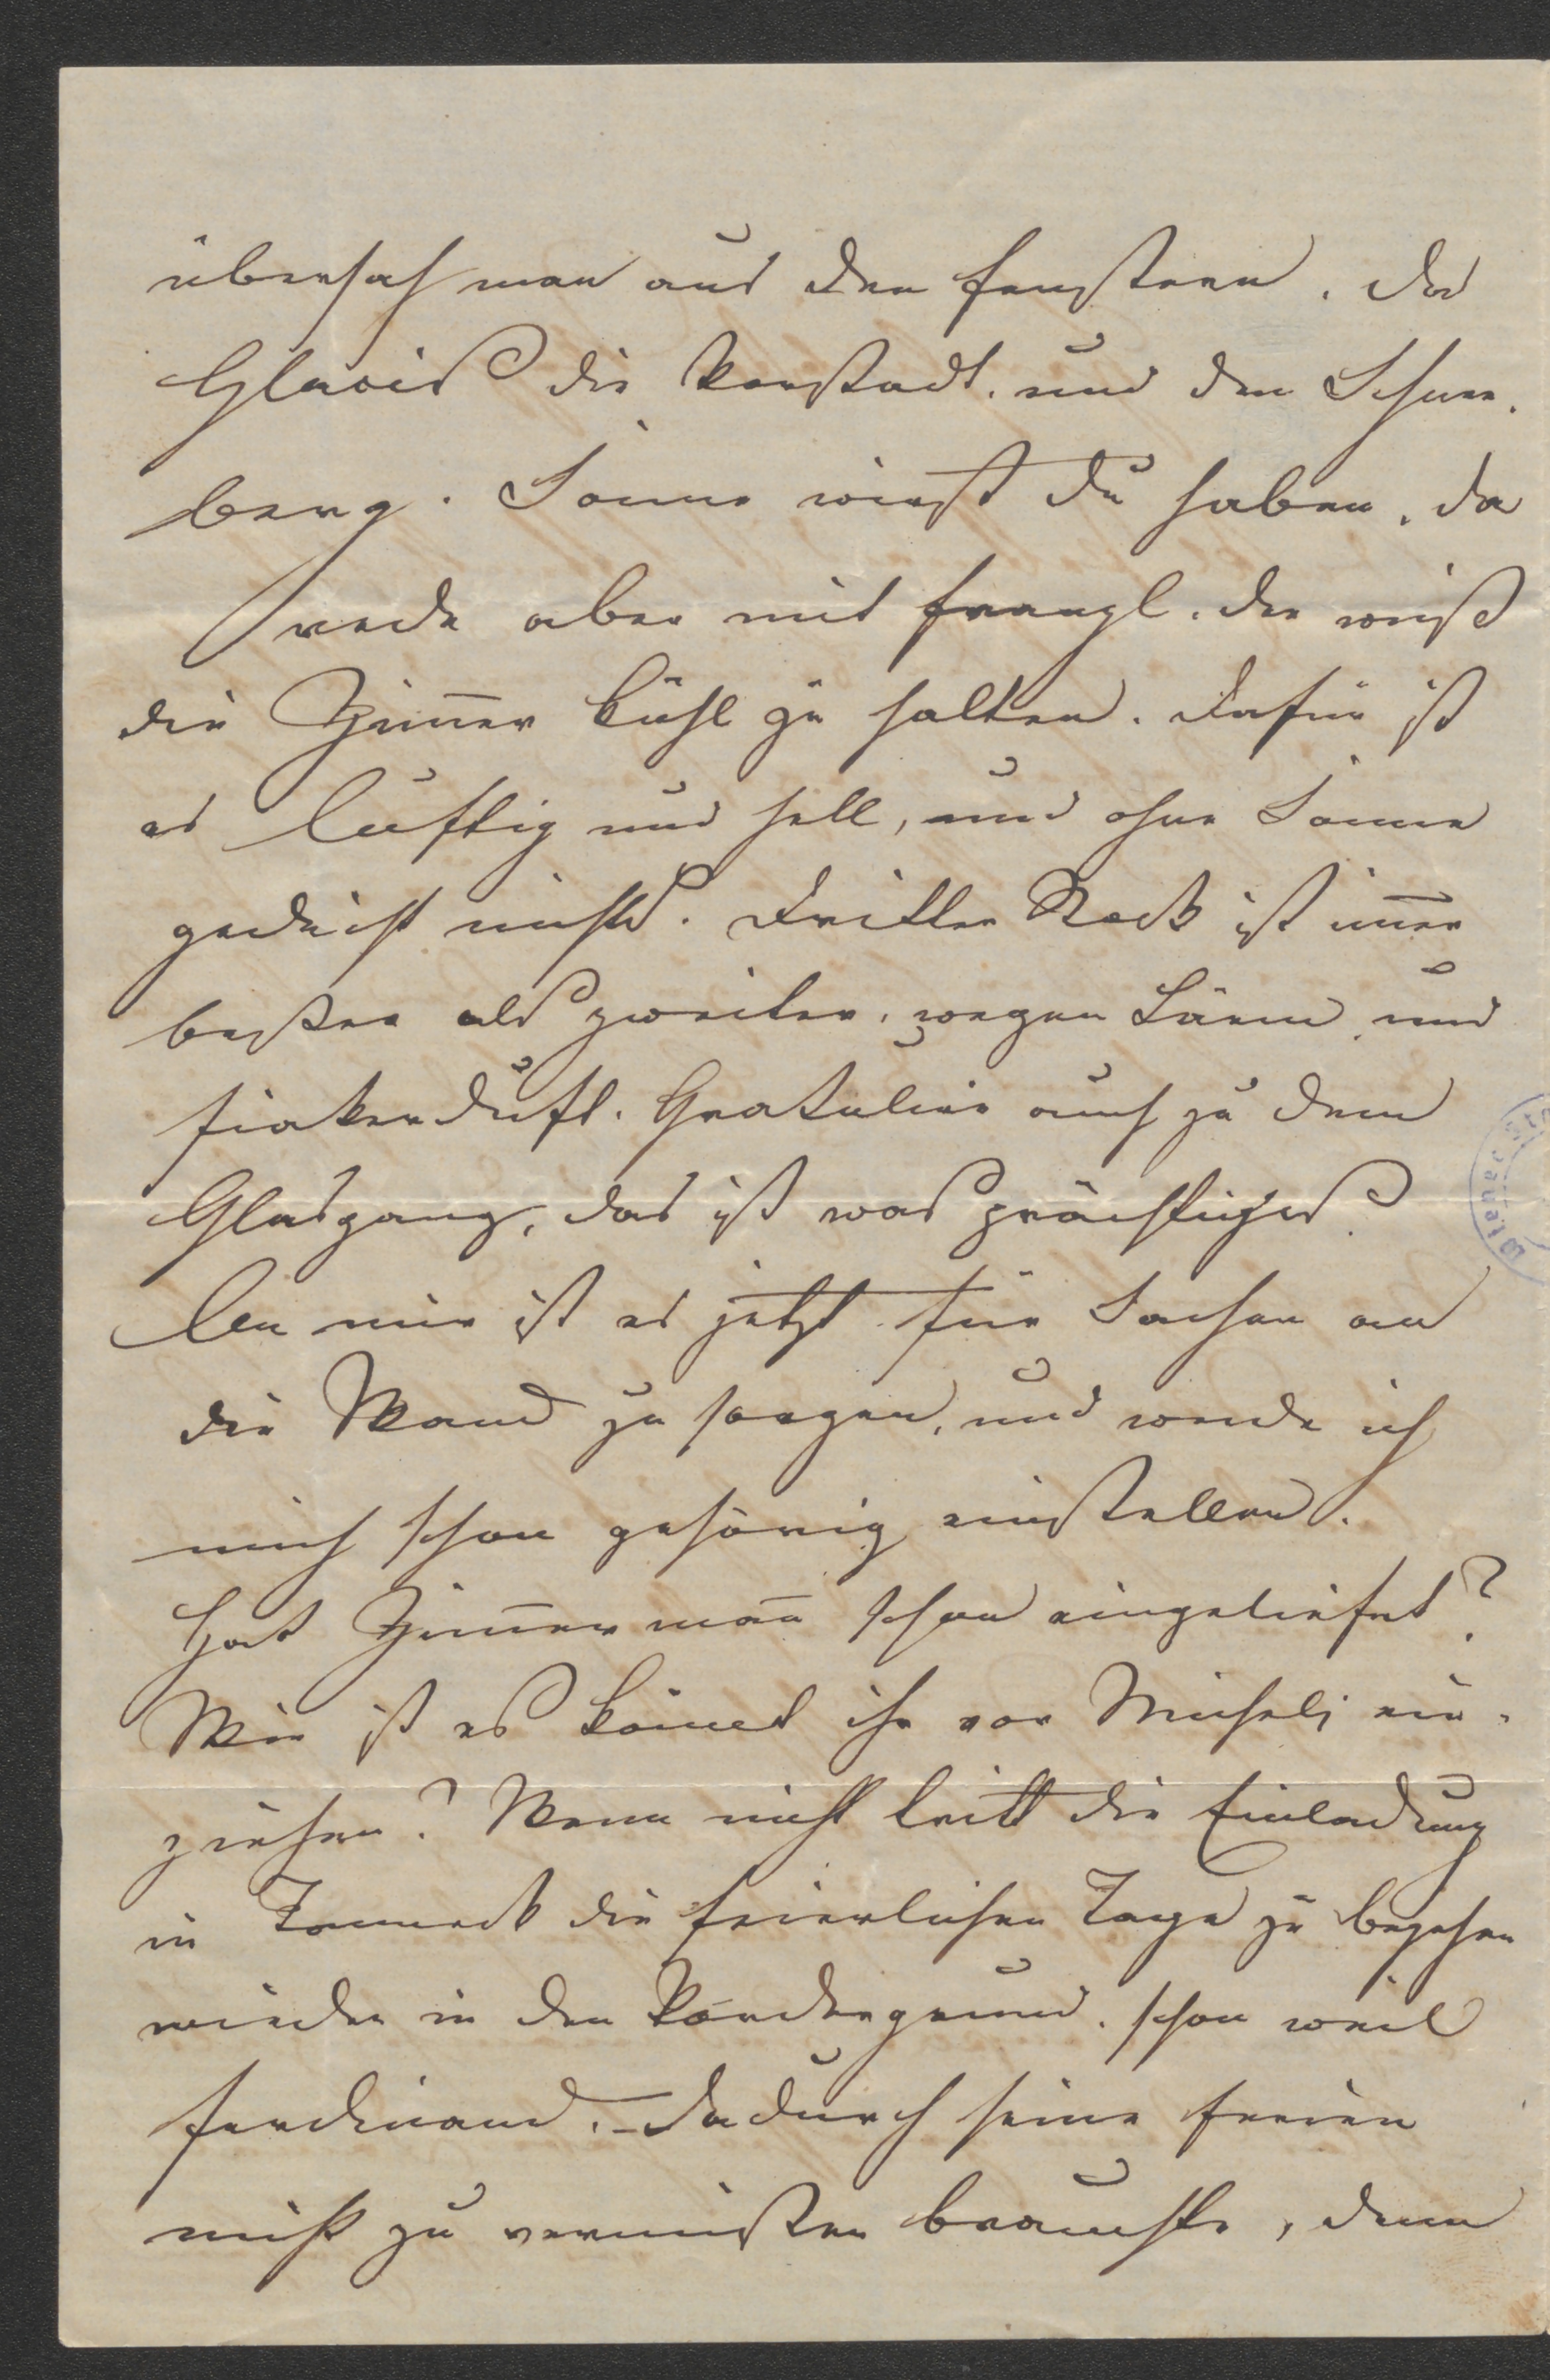 übersah man aus den Fenstern. das
Glacis die Vorstadt. und den Schnee.
berg. Sonne wirst du haben. da
rede aber mit Frangl. der weiß
die Zim̅er kühl zu halten. Dafür ist
es luftig und hell, und ohne Sonne
gedeiht nichts. Dritter Stock ist im̅er
besser als zweiter. wegen Lärm und
Fiakerduft. Gratulire auch zu dem
Glasgang, das ist was prächtiges
An mir ist es jetzt für Sachen an
die Wand zu sorgen, und werde ich
mich schon gehörig einstellen.
Hat Zim̅erman̅ schon eingeliefert?
Wie ist es könnet ihr vor Micheli ein-
ziehen? Wenn nicht tritt die Einladung
in die feierlichen Tage zu begehen
wieder in den Vordergrund. schon weil
Ferdinand. dadurch seine Ferien
nicht zu vermissen brauchte, denn
Wiener Sta